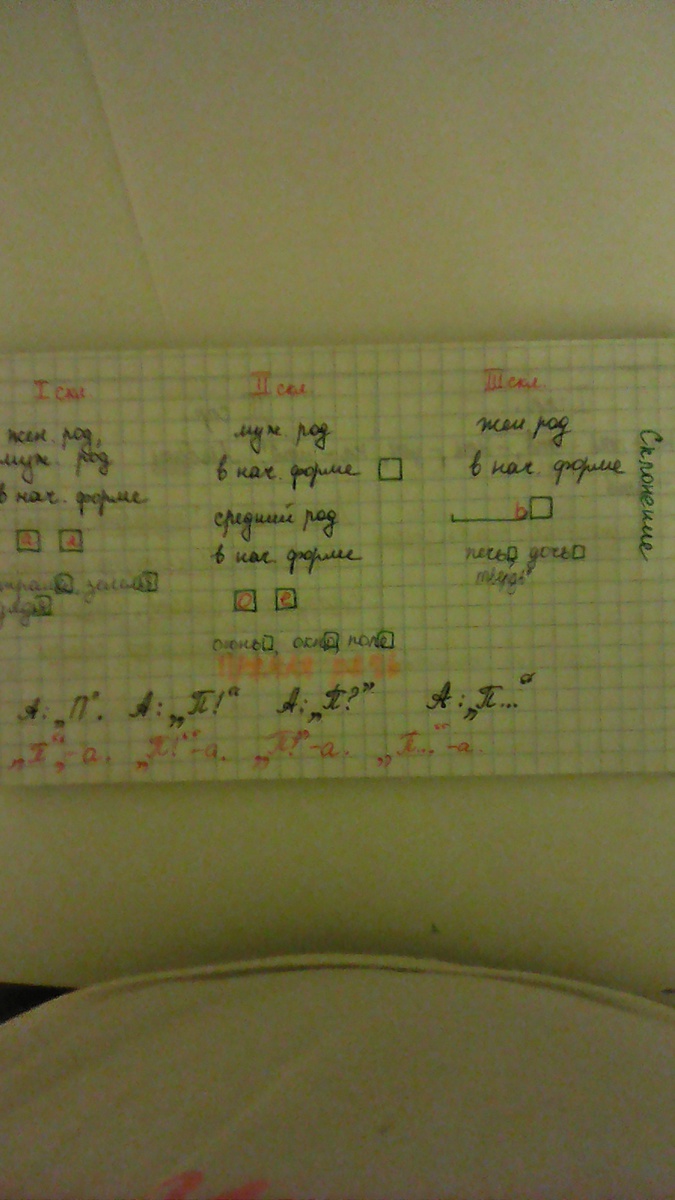 I скл.
жен. род,
муж. род
в нач. форме
а я
земля
II скл.
муж. род
в нач. форме
средний род
в нач. форме
о е
огонь, окно, поле
III скл.
жен. род
в нач. форме
ь
печь, дочь
Склонение
Прямая речь
А: „П“. А: „П!“ А: „П?” А: „П...“
„П“,-а. „П!“-а. „П?”-а. „П...“-а.